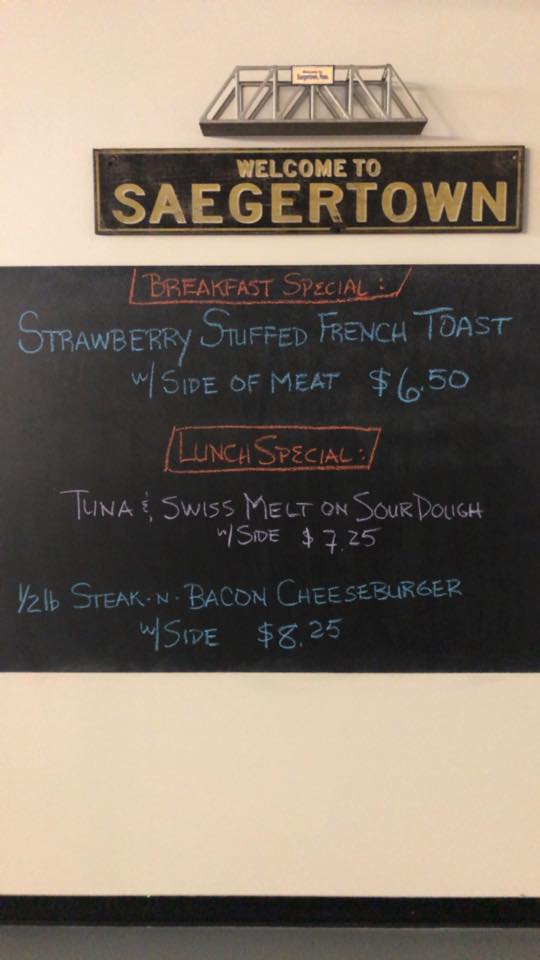 Welcome to
Saegertown, Penna.
WELCOME TO
SAEGERTOWN
BREAKFAST SPECIAL:
STRAWBERRY STUFFED FRENCH TOAST
w/ SIDE OF MEAT $6.50
LUNCH SPECIAL:
TUNA & SWISS MELT ON SOUR DOUGH
w/ SIDE $7.25
1/2 lb STEAK-N-BACON CHEESEBURGER
w/ SIDE $8.25